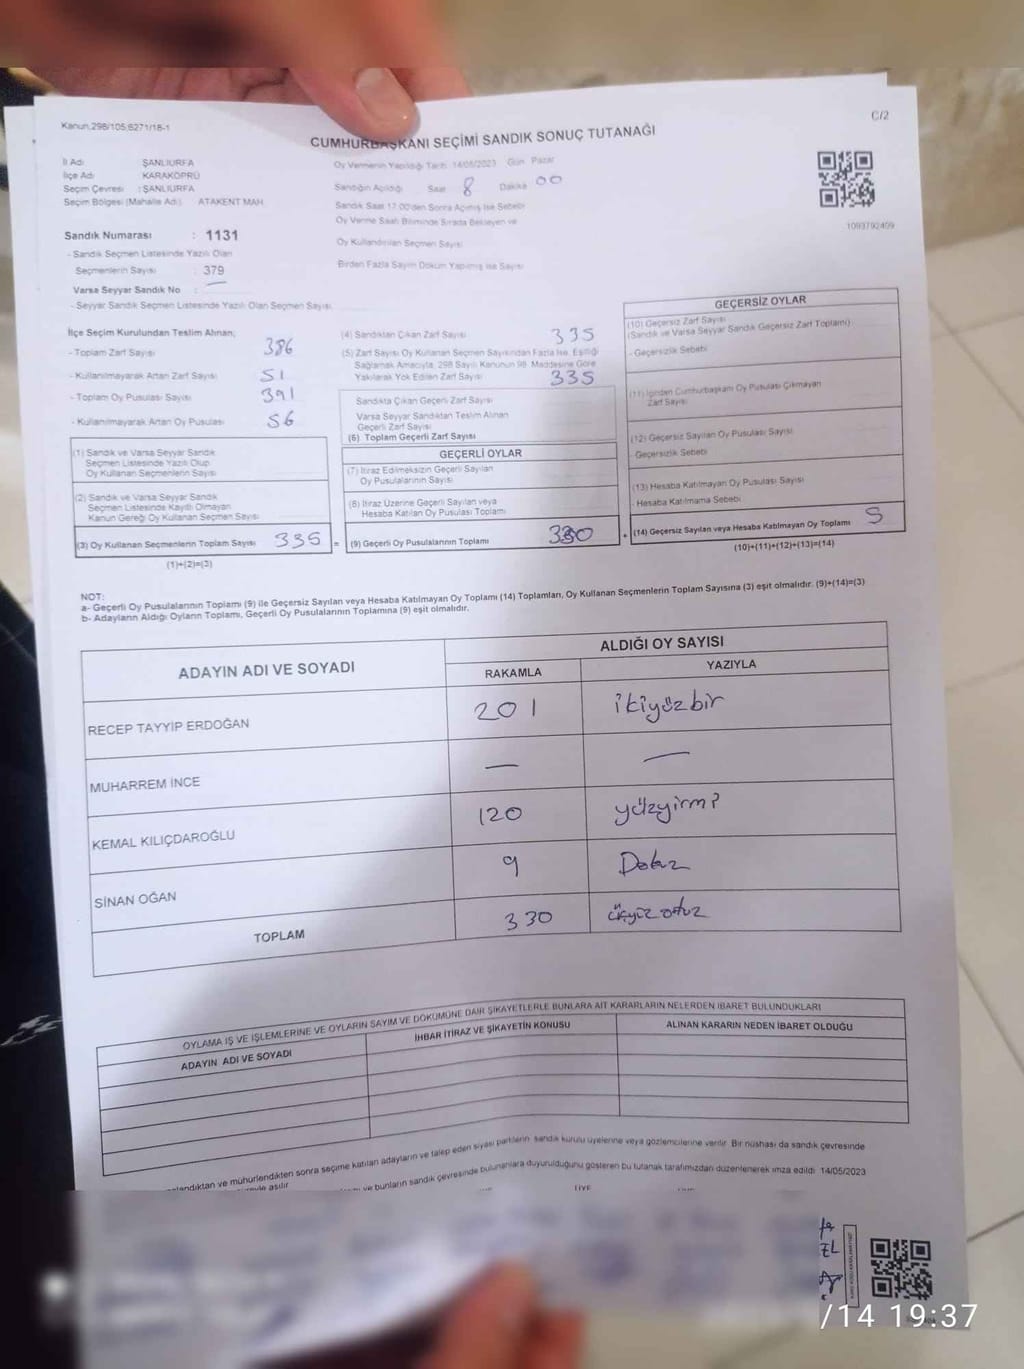 Kanun,298/105,6271/18-1
C/2
CUMHURBAŞKANI SEÇİMİ SANDIK SONUÇ TUTANAĞI
İl Adı ŞANLIURFA
İlçe Adı KARAKÖPRÜ
Seçim Çevresi : ŞANLIURFA
Seçim Bölgesi (Mahalle Adı) ATAKENT MAH.
Oy Vermenin Yapıldığı Tarih 14/05/2023 Gün Pazar
Sandığın Açıldığı Saat 8 Dakika 00
Sandık Saat 17:00'den Sonra Açılmış İse Sebebi
Oy Verme Saati Bitiminde Sırada Bekleyen ve
Oy Kullandırılan Seçmen Sayısı
Birden Fazla Sayım Döküm Yapılmış İse Sayısı
1093792409
Sandık Numarası : 1131
- Sandık Seçmen Listesinde Yazılı Olan
Seçmenlerin Sayısı : 379
Varsa Seyyar Sandık No : —
- Seyyar Sandık Seçmen Listesinde Yazılı Olan Seçmen Sayısı
İlçe Seçim Kurulundan Teslim Alınan;
- Toplam Zarf Sayısı 386
- Kullanılmayarak Artan Zarf Sayısı 51
- Toplam Oy Pusulası Sayısı 391
- Kullanılmayarak Artan Oy Pusulası 56
(1) Sandık ve Varsa Seyyar Sandık
Seçmen Listesinde Yazılı Olup
Oy Kullanan Seçmenlerin Sayısı
(2) Sandık ve Varsa Seyyar Sandık
Seçmen Listesinde Kayıtlı Olmayan
Kanun Gereği Oy Kullanan Seçmen Sayısı
(3) Oy Kullanan Seçmenlerin Toplam Sayısı 335 =
(1)+(2)=(3)
(4) Sandıktan Çıkan Zarf Sayısı 335
(5) Zarf Sayısı Oy Kullanan Seçmen Sayısından Fazla İse, Eşitliği
Sağlamak Amacıyla, 298 Sayılı Kanunun 98. Maddesine Göre
Yakılarak Yok Edilen Zarf Sayısı 335
Sandıkta Çıkan Geçerli Zarf Sayısı
Varsa Seyyar Sandıktan Teslim Alınan
Geçerli Zarf Sayısı
(6) Toplam Geçerli Zarf Sayısı
GEÇERLİ OYLAR
(7) İtiraz Edilmeksizin Geçerli Sayılan
Oy Pusulalarının Sayısı
(8) İtiraz Üzerine Geçerli Sayılan veya
Hesaba Katılan Oy Pusulası Toplamı
(9) Geçerli Oy Pusulalarının Toplamı 330 +
GEÇERSİZ OYLAR
(10) Geçersiz Zarf Sayısı
(Sandık ve Varsa Seyyar Sandık Geçersiz Zarf Toplamı)
- Geçersizlik Sebebi
(11) İçinden Cumhurbaşkanı Oy Pusulası Çıkmayan
Zarf Sayısı
(12) Geçersiz Sayılan Oy Pusulası Sayısı
- Geçersizlik Sebebi
(13) Hesaba Katılmayan Oy Pusulası Sayısı
- Hesaba Katılmama Sebebi
(14) Geçersiz Sayılan veya Hesaba Katılmayan Oy Toplamı 5
(10)+(11)+(12)+(13)=(14)
NOT:
a- Geçerli Oy Pusulalarının Toplamı (9) ile Geçersiz Sayılan veya Hesaba Katılmayan Oy Toplamı (14) Toplamları, Oy Kullanan Seçmenlerin Toplam Sayısına (3) eşit olmalıdır. (9)+(14)=(3)
b- Adayların Aldığı Oyların Toplamı, Geçerli Oy Pusulalarının Toplamına (9) eşit olmalıdır.
ADAYIN ADI VE SOYADI ALDIĞI OY SAYISI
RAKAMLA YAZIYLA
RECEP TAYYİP ERDOĞAN 201 ikiyüzbir
MUHARREM İNCE — —
KEMAL KILIÇDAROĞLU 120 yüzyirmi
SİNAN OĞAN 9 Dokuz
TOPLAM 330 üçyüz otuz
OYLAMA İŞ VE İŞLEMLERİNE VE OYLARIN SAYIM VE DÖKÜMÜNE DAİR ŞİKAYETLERLE BUNLARA AİT KARARLARIN NELERDEN İBARET BULUNDUKLARI
ADAYIN ADI VE SOYADI İHBAR İTİRAZ VE ŞİKAYETİN KONUSU ALINAN KARARIN NEDEN İBARET OLDUĞU
ve mühürlendikten sonra seçime katılan adayların ve talep eden siyasi partilerin sandık kurulu üyelerine veya gözlemcilerine verilir. Bir nüshası da sandık çevresinde
asılır. ve bunların sandık çevresinde bulunanlara duyurulduğunu gösteren bu tutanak tarafımızdan düzenlenerek imza edildi. 14/05/2023
/14 19:37